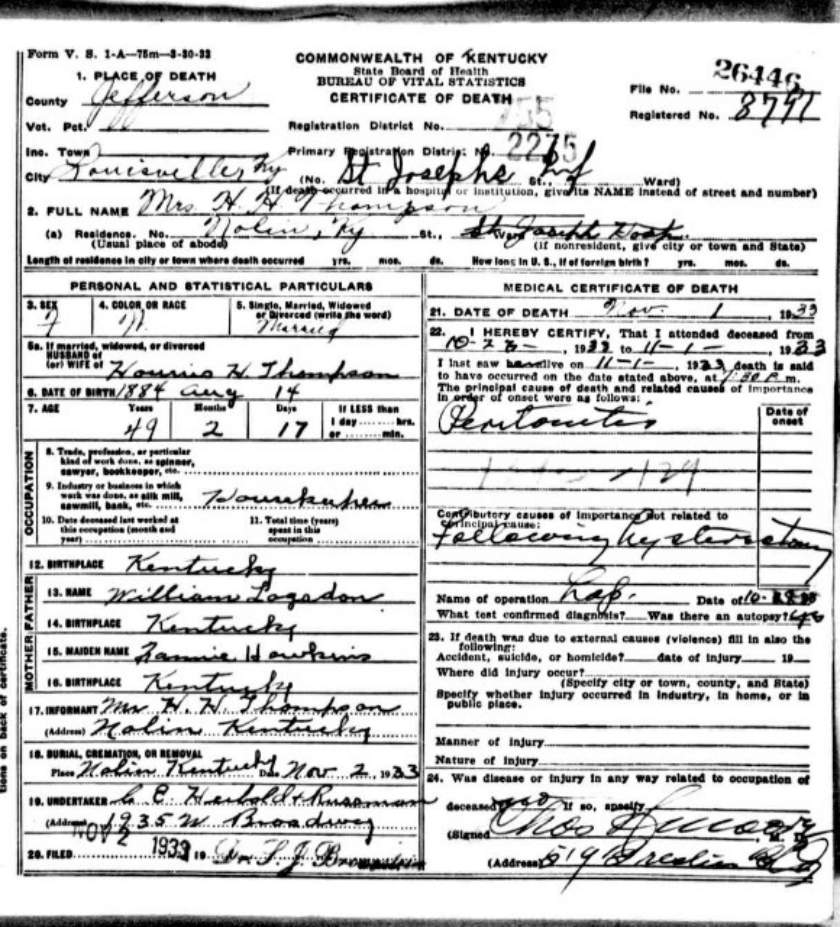 Form V. S. 1-A—75m—3-30-33
COMMONWEALTH OF KENTUCKY
State Board of Health
BUREAU OF VITAL STATISTICS
CERTIFICATE OF DEATH
File No. 26446
Registered No. 8791
1. PLACE OF DEATH
County Jefferson
Vot. Pct.
Inc. Town
City Louisville, Ky
Registration District No.
Primary Registration District No. 2275
(No. St Josephs Inf St., Ward)
(If death occurred in a hospital or institution, give its NAME instead of street and number)
2. FULL NAME Mrs H. H. Thompson
(a) Residence. No. Nolin, Ky St., Ward. St Joseph Hosp.
(Usual place of abode)
(If nonresident, give city or town and State)
Length of residence in city or town where death occurred yrs. mos. ds. How long in U. S., if of foreign birth? yrs. mos. ds.
PERSONAL AND STATISTICAL PARTICULARS
3. SEX
F
4. COLOR OR RACE
W.
5. Single, Married, Widowed
or Divorced (write the word)
Married
5a. If married, widowed, or divorced
HUSBAND of
(or) WIFE of H. Thompson
6. DATE OF BIRTH 1884 Aug 14
7. AGE Years Months Days If LESS than
1 day hrs.
or min.
49 2 17
OCCUPATION
8. Trade, profession, or particular
kind of work done, as spinner,
sawyer, bookkeeper, etc.
9. Industry or business in which
work was done, as silk mill,
sawmill, bank, etc. Housekeeper
10. Date deceased last worked at
this occupation (month and
year)
11. Total time (years)
spent in this
occupation
12. BIRTHPLACE Kentucky
FATHER
13. NAME William Logsdon
14. BIRTHPLACE Kentucky
MOTHER
15. MAIDEN NAME Hawkins
16. BIRTHPLACE Kentucky
17. INFORMANT Mr H. H. Thompson
(Address) Nolin Kentucky
18. BURIAL, CREMATION, OR REMOVAL
Place Nolin Kentucky Date Nov 2, 1933
19. UNDERTAKER
(Address) 1935 W Broadway
NOV 2 1933
20. FILED 19
MEDICAL CERTIFICATE OF DEATH
21. DATE OF DEATH Nov. 1, 1933
22. I HEREBY CERTIFY, That I attended deceased from
, 1933 to 11-1-, 1933
I last saw alive on 11-1-, 1933 death is said
to have occurred on the date stated above, at P. m.
The principal cause of death and related causes of importance
in order of onset were as follows:
Date of
onset
Peritonitis
Contributory causes of importance not related to
principal cause:
Following hysterectomy
Name of operation Lap. Date of
What test confirmed diagnosis? Was there an autopsy?
23. If death was due to external causes (violence) fill in also the
following:
Accident, suicide, or homicide? date of injury 19
Where did injury occur?
(Specify city or town, county, and State)
Specify whether injury occurred in industry, in home, or in
public place.
Manner of injury
Nature of injury
24. Was disease or injury in any way related to occupation of
deceased? If so, specify
(Signed)
(Address)
tions on back of certificate.